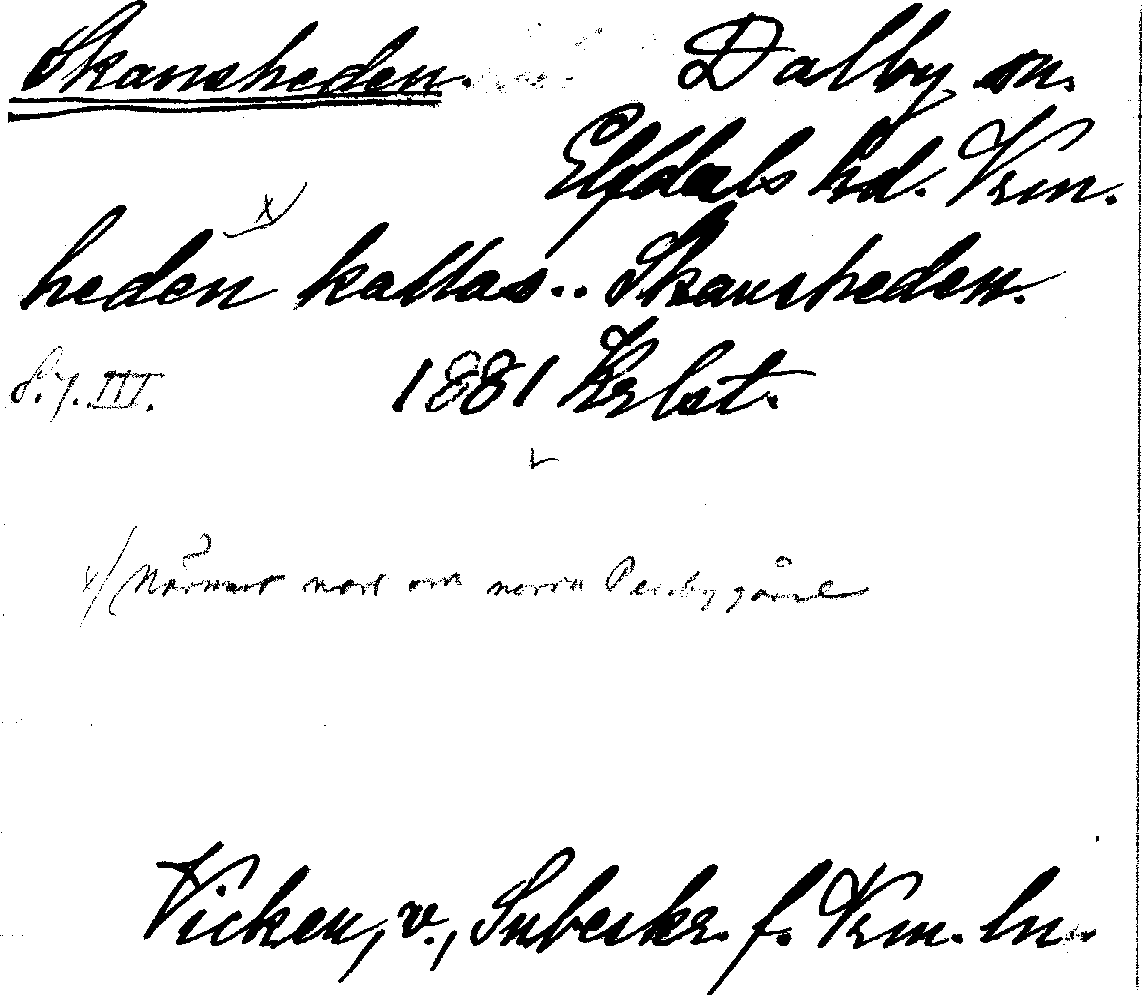 Skansheden. Dalby sn.
Elfdals hd. Vrm.
x/
heden kallas.. Skansheden.
Sid. III. 1881 Krbst.
x/ Närmast norr om norra Persbygärde
Vicken, v., Inbeskr. f. Vrm. ln.